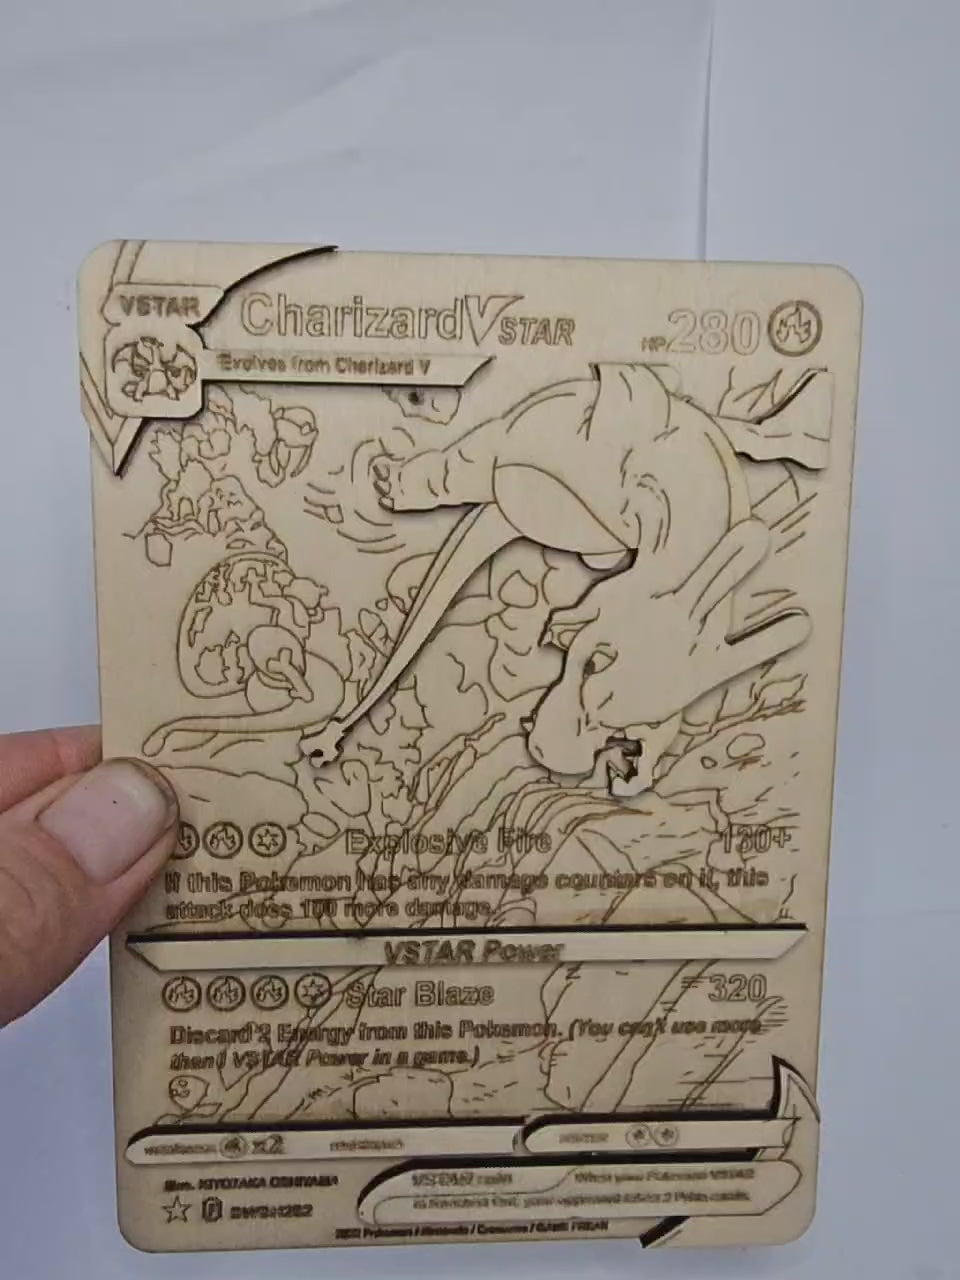 VSTAR
CharizardVSTAR
HP 280
Evolves from Charizard V
Explosive Fire 130+
If this Pokemon has any damage counters on it, this
attack does 100 more damage.
VSTAR Power
Star Blaze 320
Discard 2 Energy from this Pokemon. (You can't use more
than 1 VSTAR Power in a game.)
x2
Illus. KIYOTAKA OSHIYAMA
VSTAR rule When your Pokemon VSTAR
is Knocked Out, your opponent takes 2 Prize cards.
SWSH262
2022 Pokemon / Nintendo / Creatures / GAME FREAK